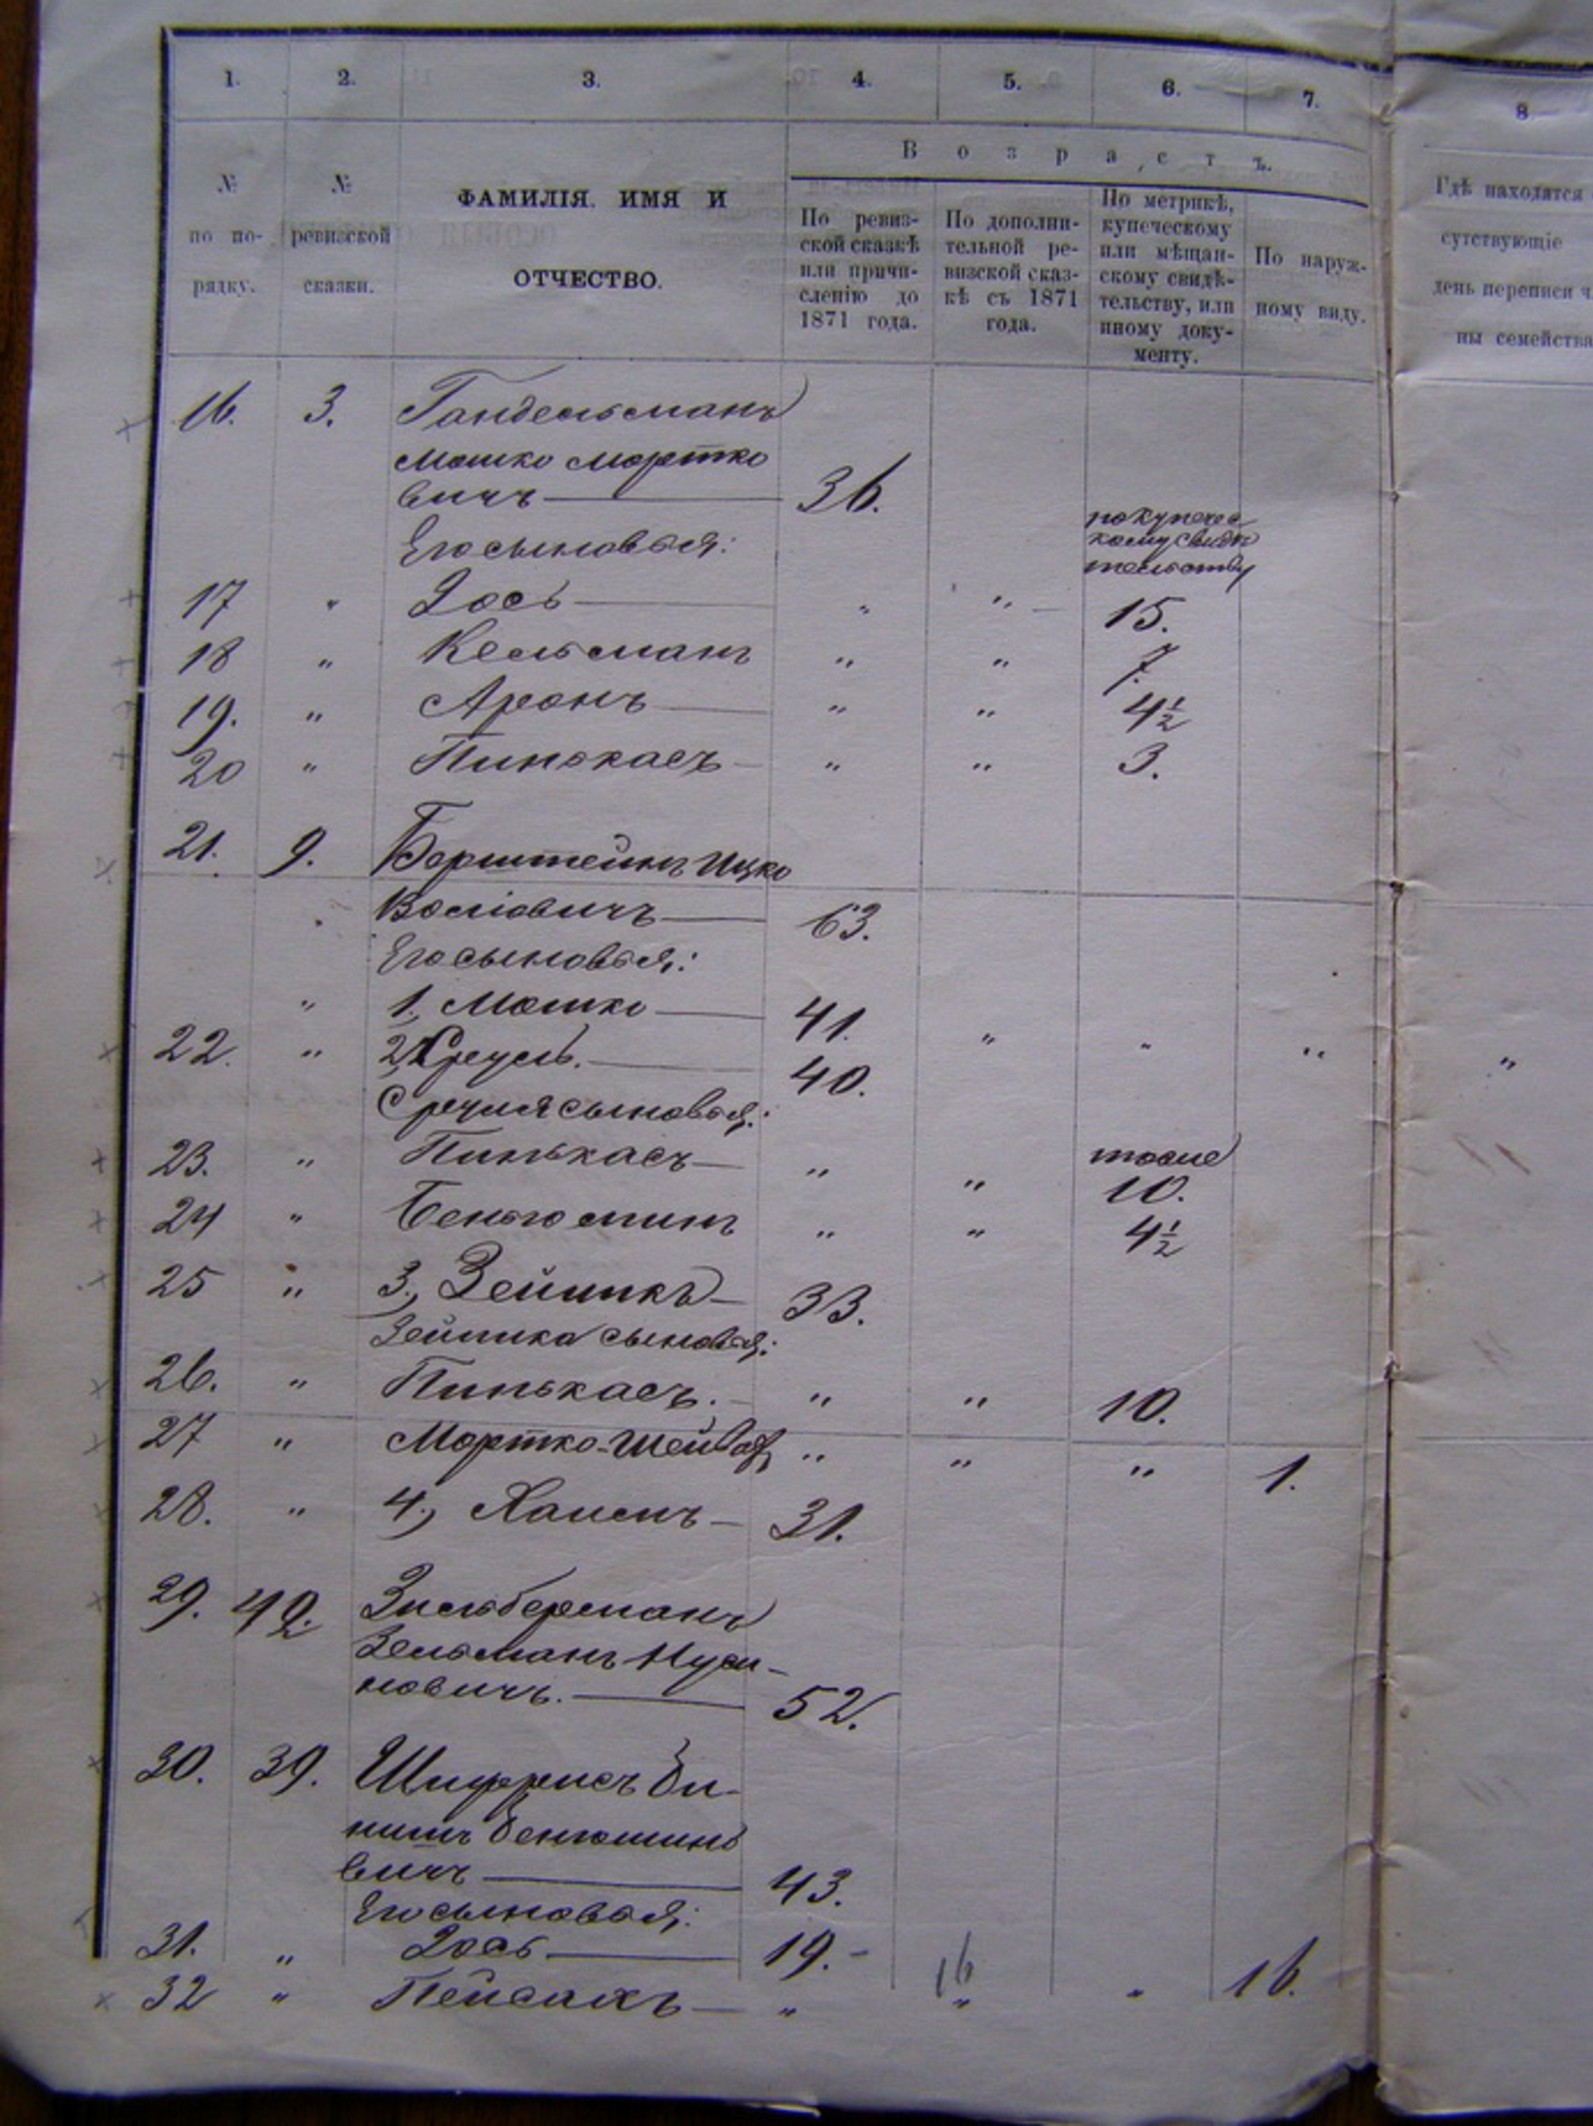 1. 2. 3. 4. 5. 6. 7. 8
№ по по-рядку.
№ ревизской сказки.
ФАМИЛІЯ. ИМЯ И
ОТЧЕСТВО.
Возрастъ.
По ревиз-
ской сказкѣ
или причи-
сленію до
1871 года.
По дополни-
тельной ре-
визской сказ-
кѣ съ 1871
года.
По метрикѣ,
купеческому
или мѣщан-
скому свидѣ-
тельству, или
иному доку-
менту.
По наруж-
ному виду.
Гдѣ находятся
сутствующіе
день переписи ч
ны семейства
16. 3. Гандельманъ
Мошко Мортко
вичъ — 36.
Его сыновья:
по купечес
кому свидѣ
тельству
17 " Іось — " " 15.
18 " Кельманъ " " 7.
19. " Аронъ — " " 4½
20 " Пинькасъ — " " 3.
21. 9. Борштейнъ Ицко
Іосіовичъ — 63.
Его сыновья:
" 1, Мошко — 41. " " " "
22. " 2, Сруль. — 40.
Сруля сыновья:
23. " Пинькасъ — " " тоже 10.
24 " Беньюминъ " " 4½
25 " 3., Зейликъ — 33.
Зейлика сыновья:
26. " Пинькасъ. — " " 10.
27 " Мортко-Шейвах " " " 1.
28. " 4., Хаимъ — 31.
29. 42. Зильберманъ
Зельманъ Нуси-
новичъ. — 52.
30. 39. Би-
Бенюмино
вичъ — 43.
Его сыновья:
31. " Іось — 19. -
32 " Пейсахъ — " 16 " " 16.